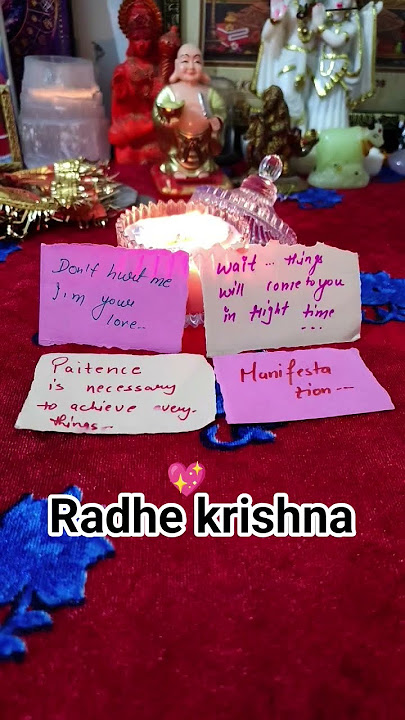 Don't hurt me
I'm your
love..
Wait... things
will come to you
in right time
...
Paitence
is necessary
to achieve every-
things..
Manifesta
tion...
Radhe krishna